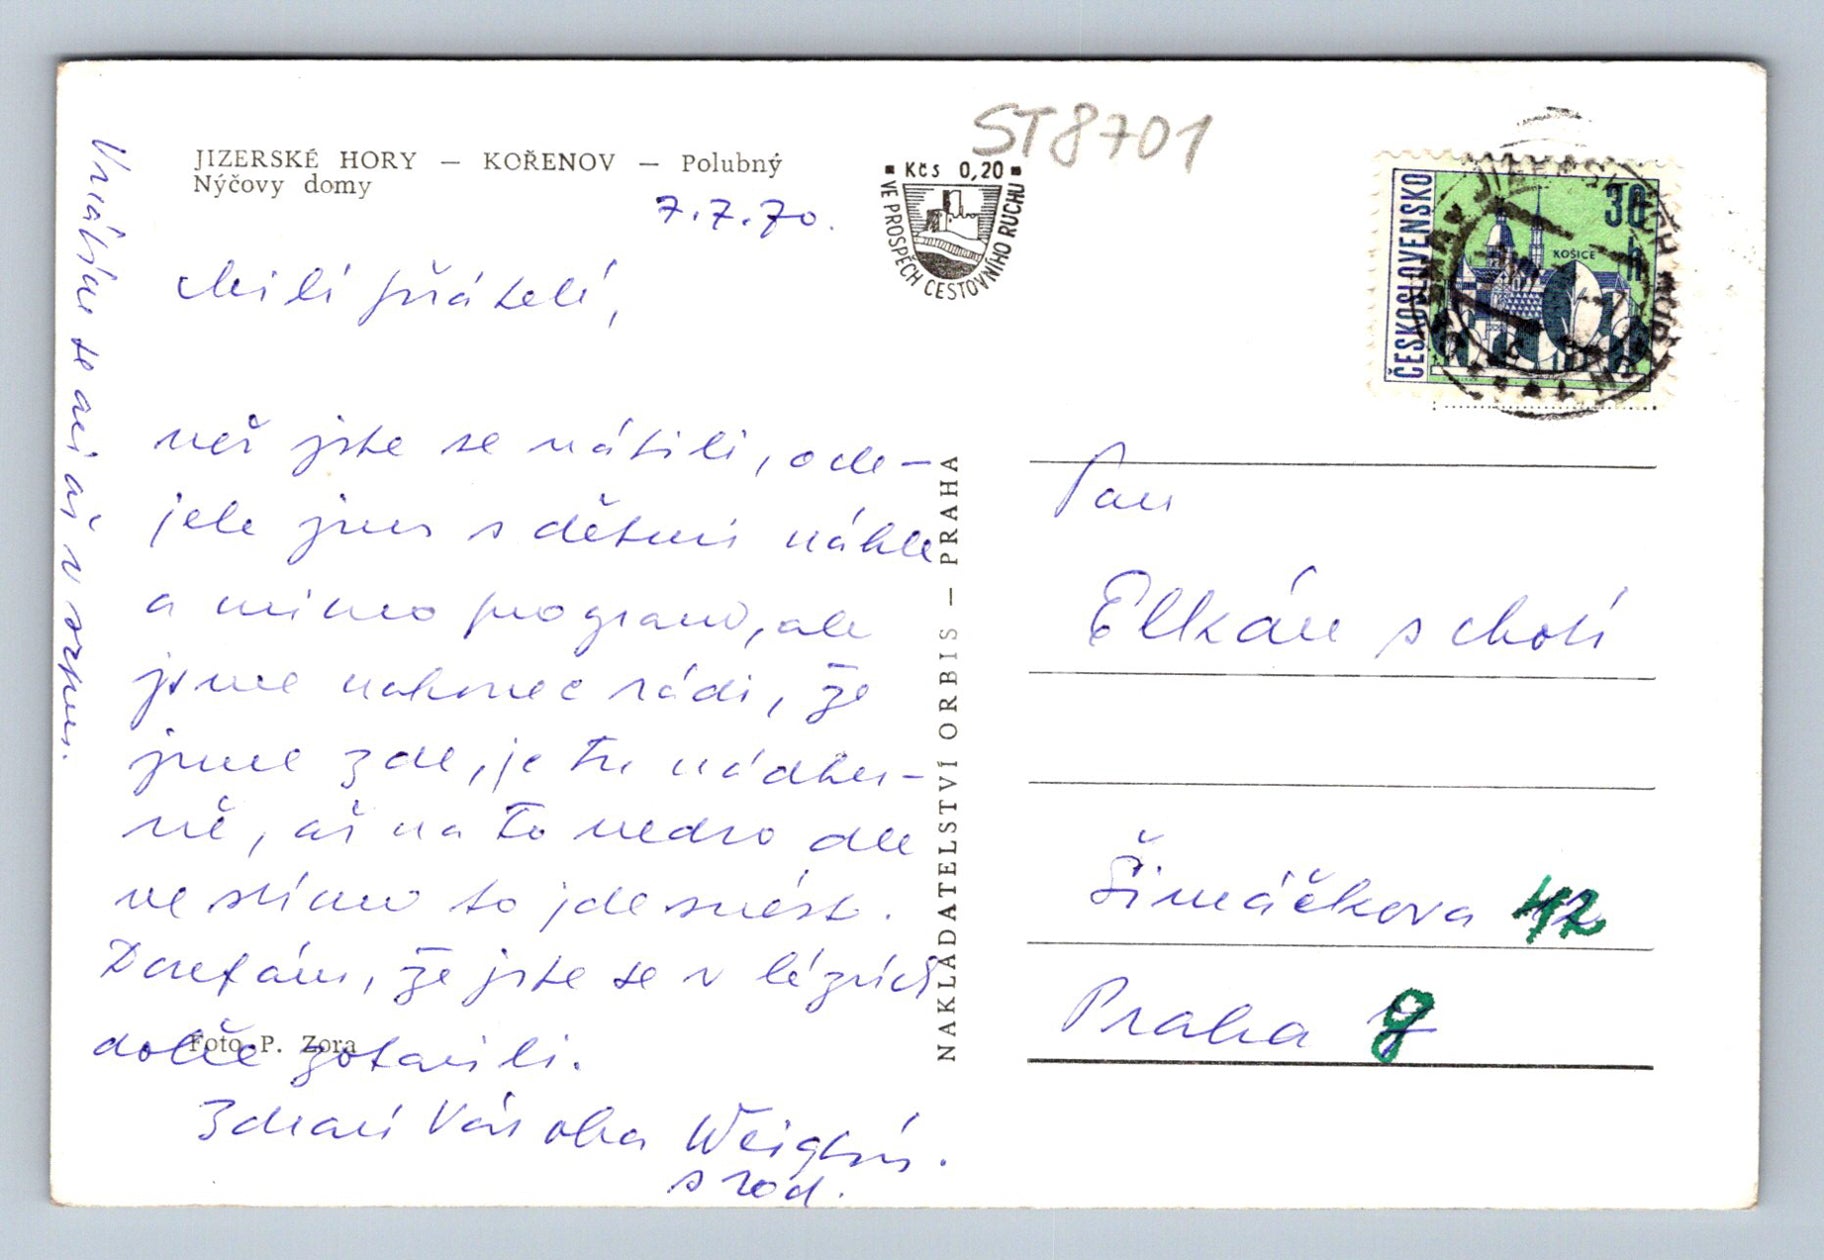 ST8701
JIZERSKÉ HORY — KOŘENOV — Polubný
Nýčovy domy
7.7.70.
Kčs 0,20
VE PROSPĚCH CESTOVNÍHO RUCHU
ČESKOSLOVENSKO
30 h
KOŠICE
Milí přátelé,
než jste se vrátili, ode-
jeli jsme s dětmi náhle
a mimo program, ale
jsme nakonec rádi, že
jsme zde, je tu nádher-
ně, až na to vedro ale
ve stínu to jde snést.
Doufám, že jste se v lázních
dobře zotavili.
Foto P. Zora
Zdraví Vás oba
s rod.
Vrátíme se asi až v srpnu.
NAKLADATELSTVÍ ORBIS — PRAHA
Pan
Elkán s chotí
Šimáčkova 12
Praha 7